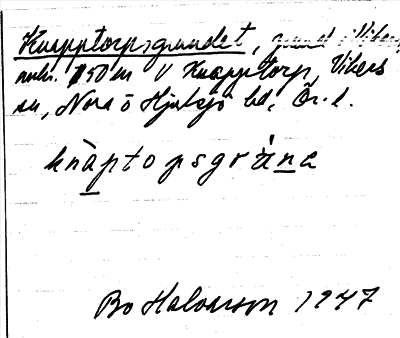 Knapptorpsgrundet, grund i Vikern,
omkr. 150 m V Knapptorp, Vikers
sn, Nora o Hjulsjö bd, Ör. l.
knàptopsgrána
Bo Halvarson 1947